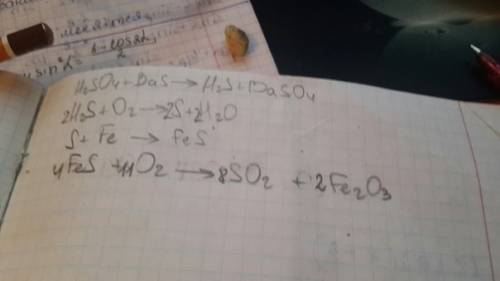 sin²α = 1-cos2α/2
H₂SO₄ + BaS → H₂S + BaSO₄
2H₂S + O₂ → 2S + 2H₂O
S + Fe → FeS
4FeS + 11O₂ → 8SO₂ + 2Fe₂O₃